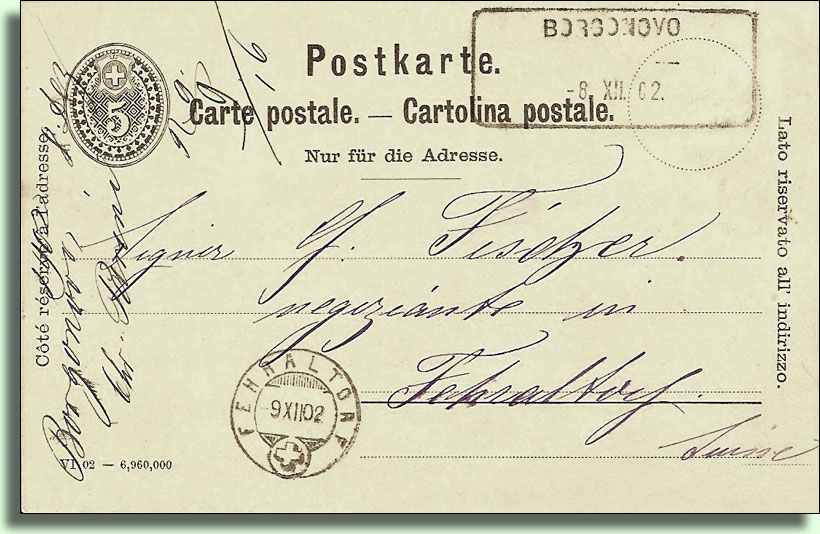 Postkarte.
Carte postale. — Cartolina postale.
Nur für die Adresse.
BORGONOVO
-8. XII. 02.
5
Côté réservé à l'adresse.
Lato riservato all' indirizzo.
Signir G. Fischer.
negoziante in
Fehraltorf
Suisse
FEHRALTORF
-9 XII 02
Borgonovo
VI. 02 — 6,960,000
16